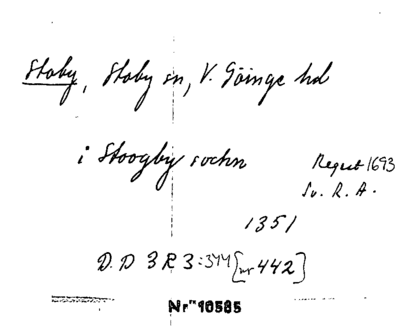 Stoby, Stoby sn, V. Göinge hd
i Stoogby sochn
Regest 1693
Sv. R. A.
1351
D. D 3 R 3:344 [nr 442]
Nr 10585